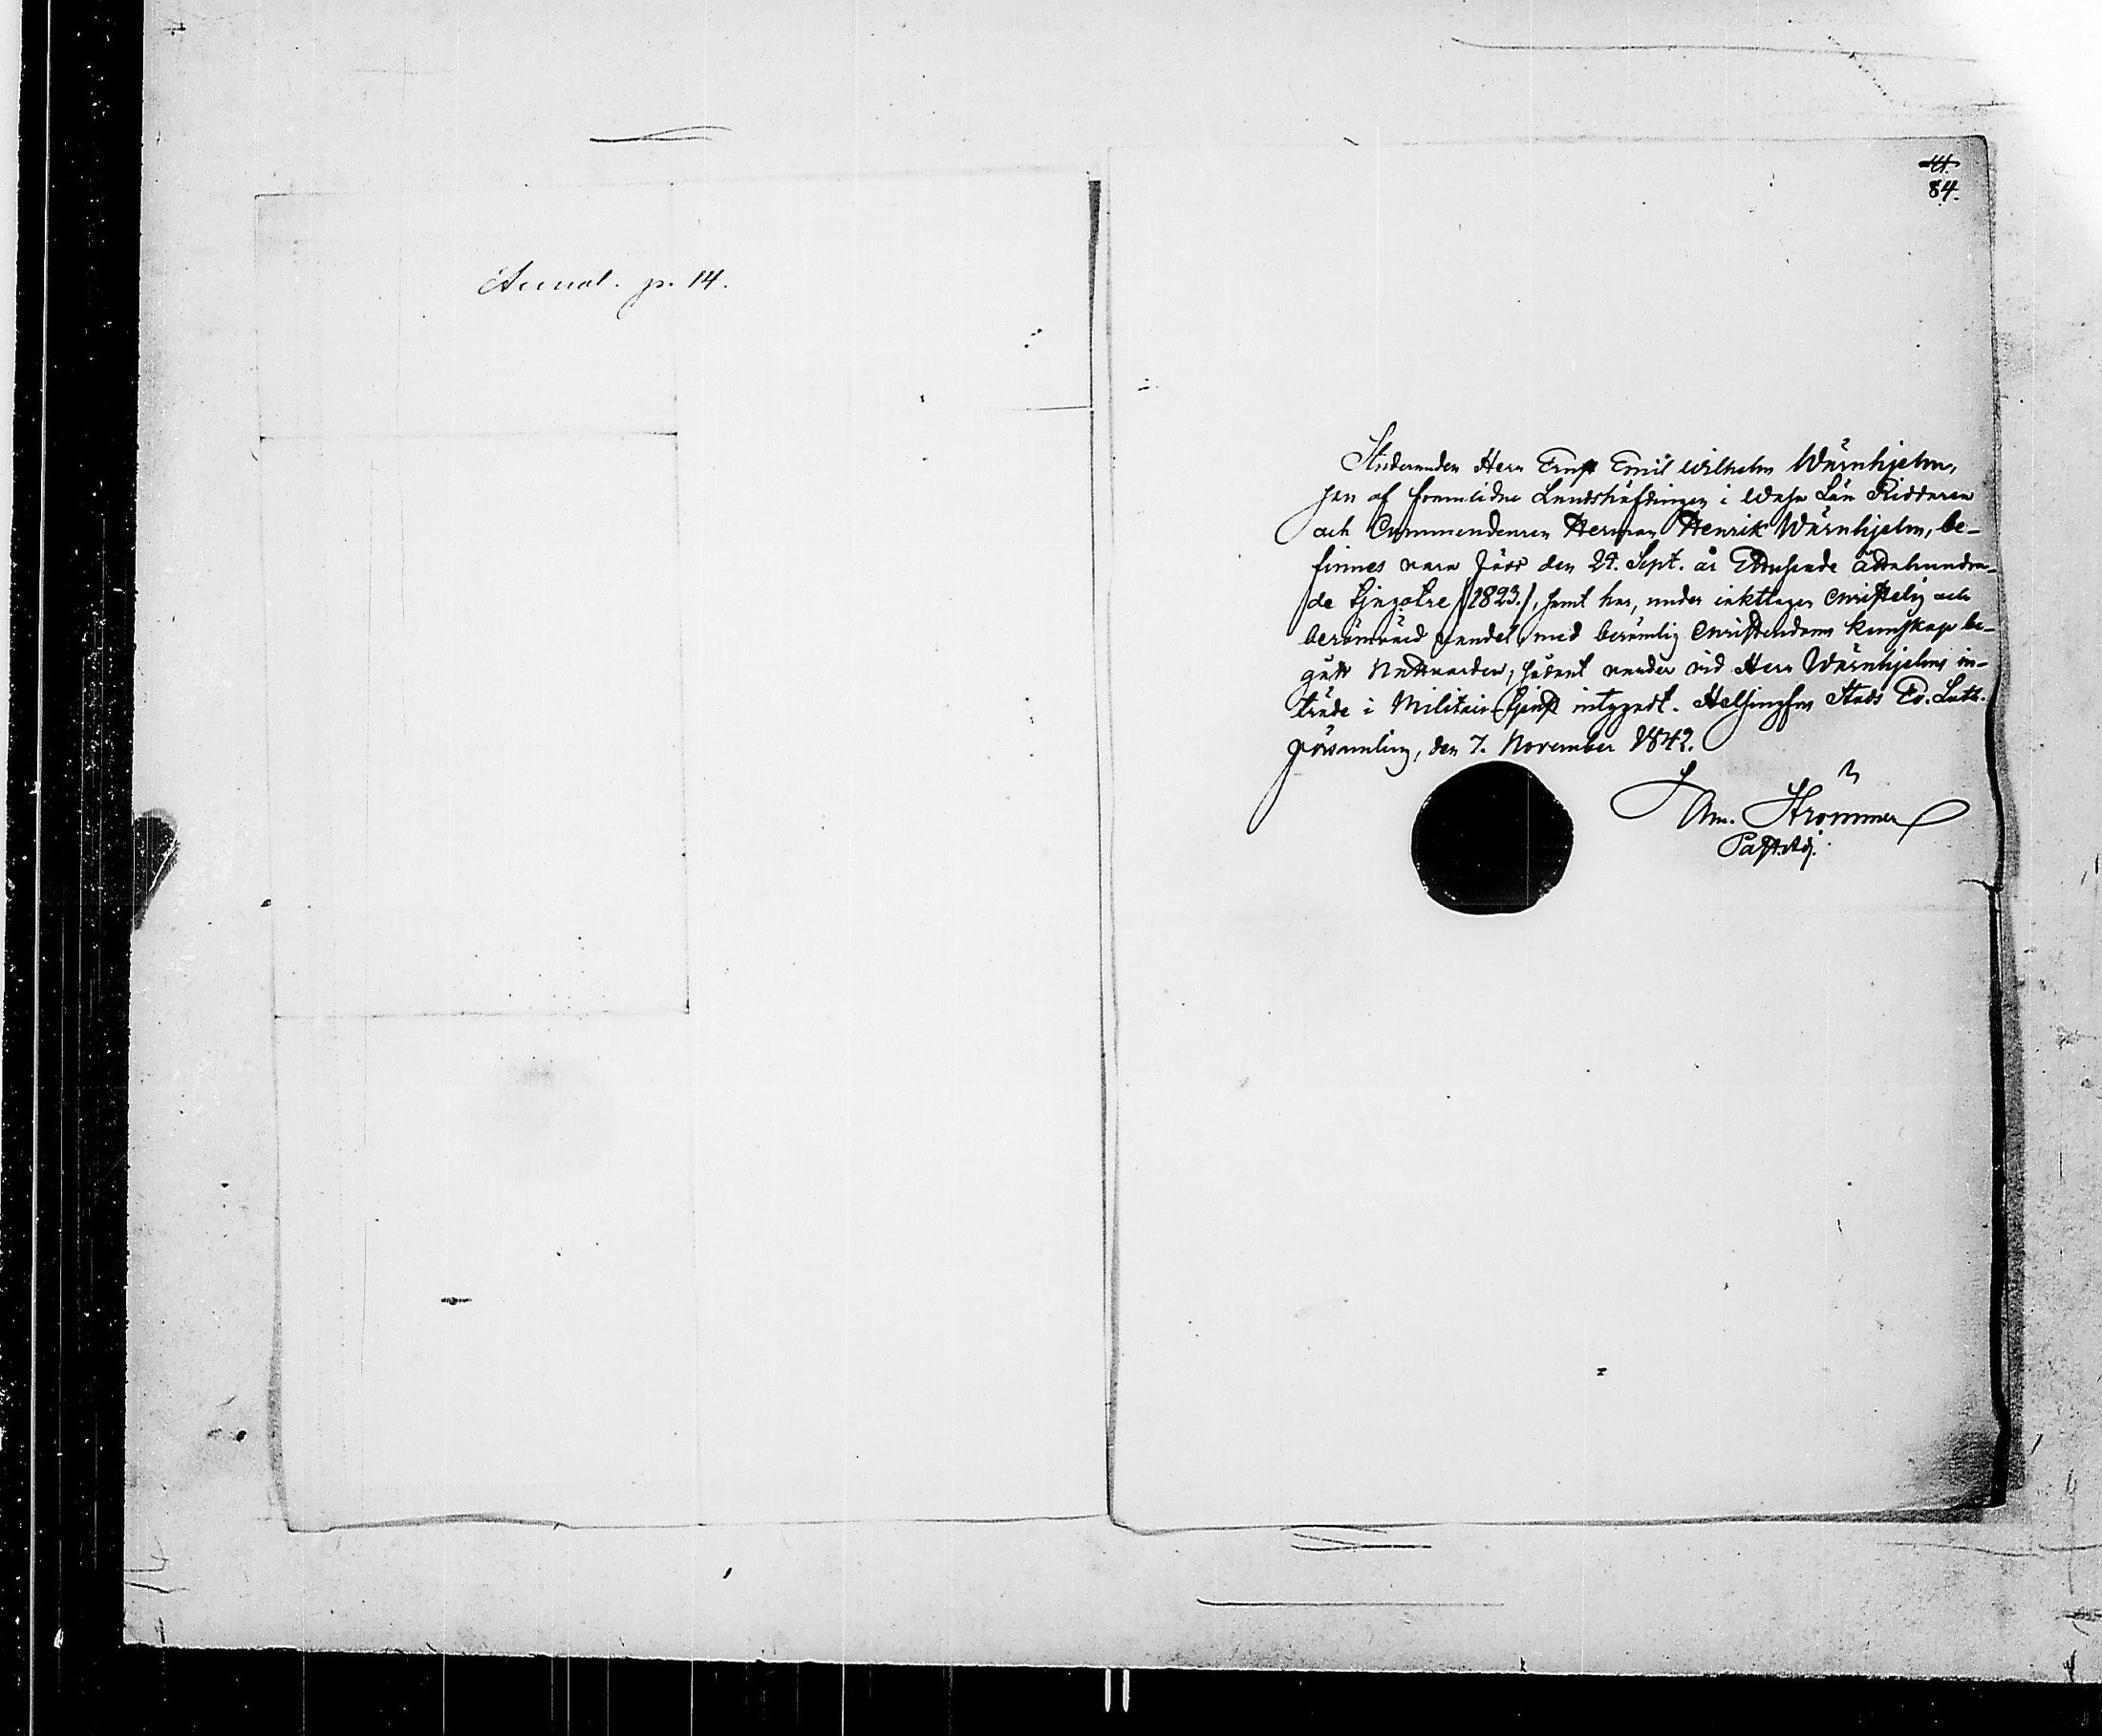 Annal. p. 14.
41.
84.
Studeranden Herr Ernst Emil Wilhelm Wärnhjelm,
son af framlidne Landshöfdingen i Wasa Län Riddaren
och Commendeuren Herman Henrik Wärnhjelm, be-
finnes vara född den 24. Sept. år Ettusende åttahundra-
de tjugotre /1823./, samt har, under iakttagen christelig och
berömvärd vandel, med berömlig Christendoms kunskap be-
gått Nattvarden; sådant varder vid Herr Wärnhjelms in-
träde i Militair-tjenst intygadt. Helsingfors Stads Ev. Luth.
församling, den 7. November 1842.
Strömmer
Past. Adj.